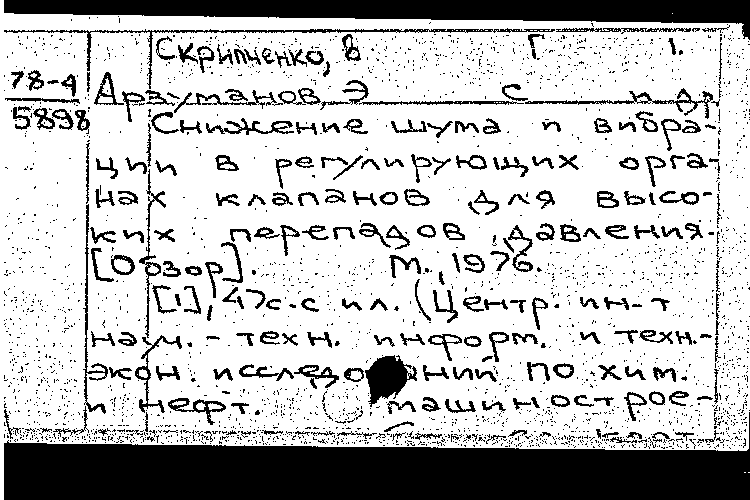 Скрипченко, В Г 1.
78-4
5898
Арзуманов, Э С и др
Снижение шума и вибра-
ции в регулирующих орга-
нах клапанов для высо-
ких перепадов давления.
[Обзор]. М., 1976.
[1], 47с. с ил. (Центр. ин-т
науч.-техн. информ. и техн.-
экон. исследований по хим.
и нефт. машинострое-